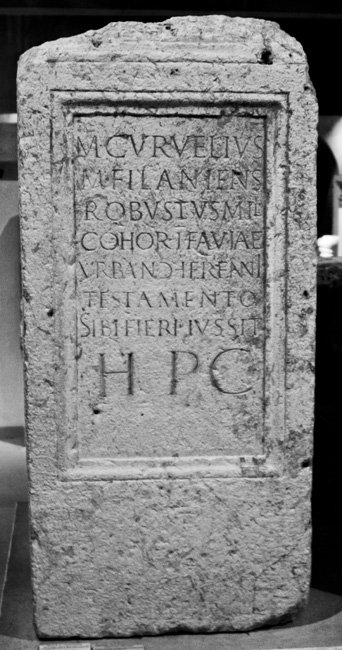 M CVRVELIVS
M FIL ANIENS
ROBVSTVS MIL
COHOR I FLAVIAE
VRBAN Ɔ HERENNI
TESTAMENTO
SIBI FIERI IVSSIT
H P C